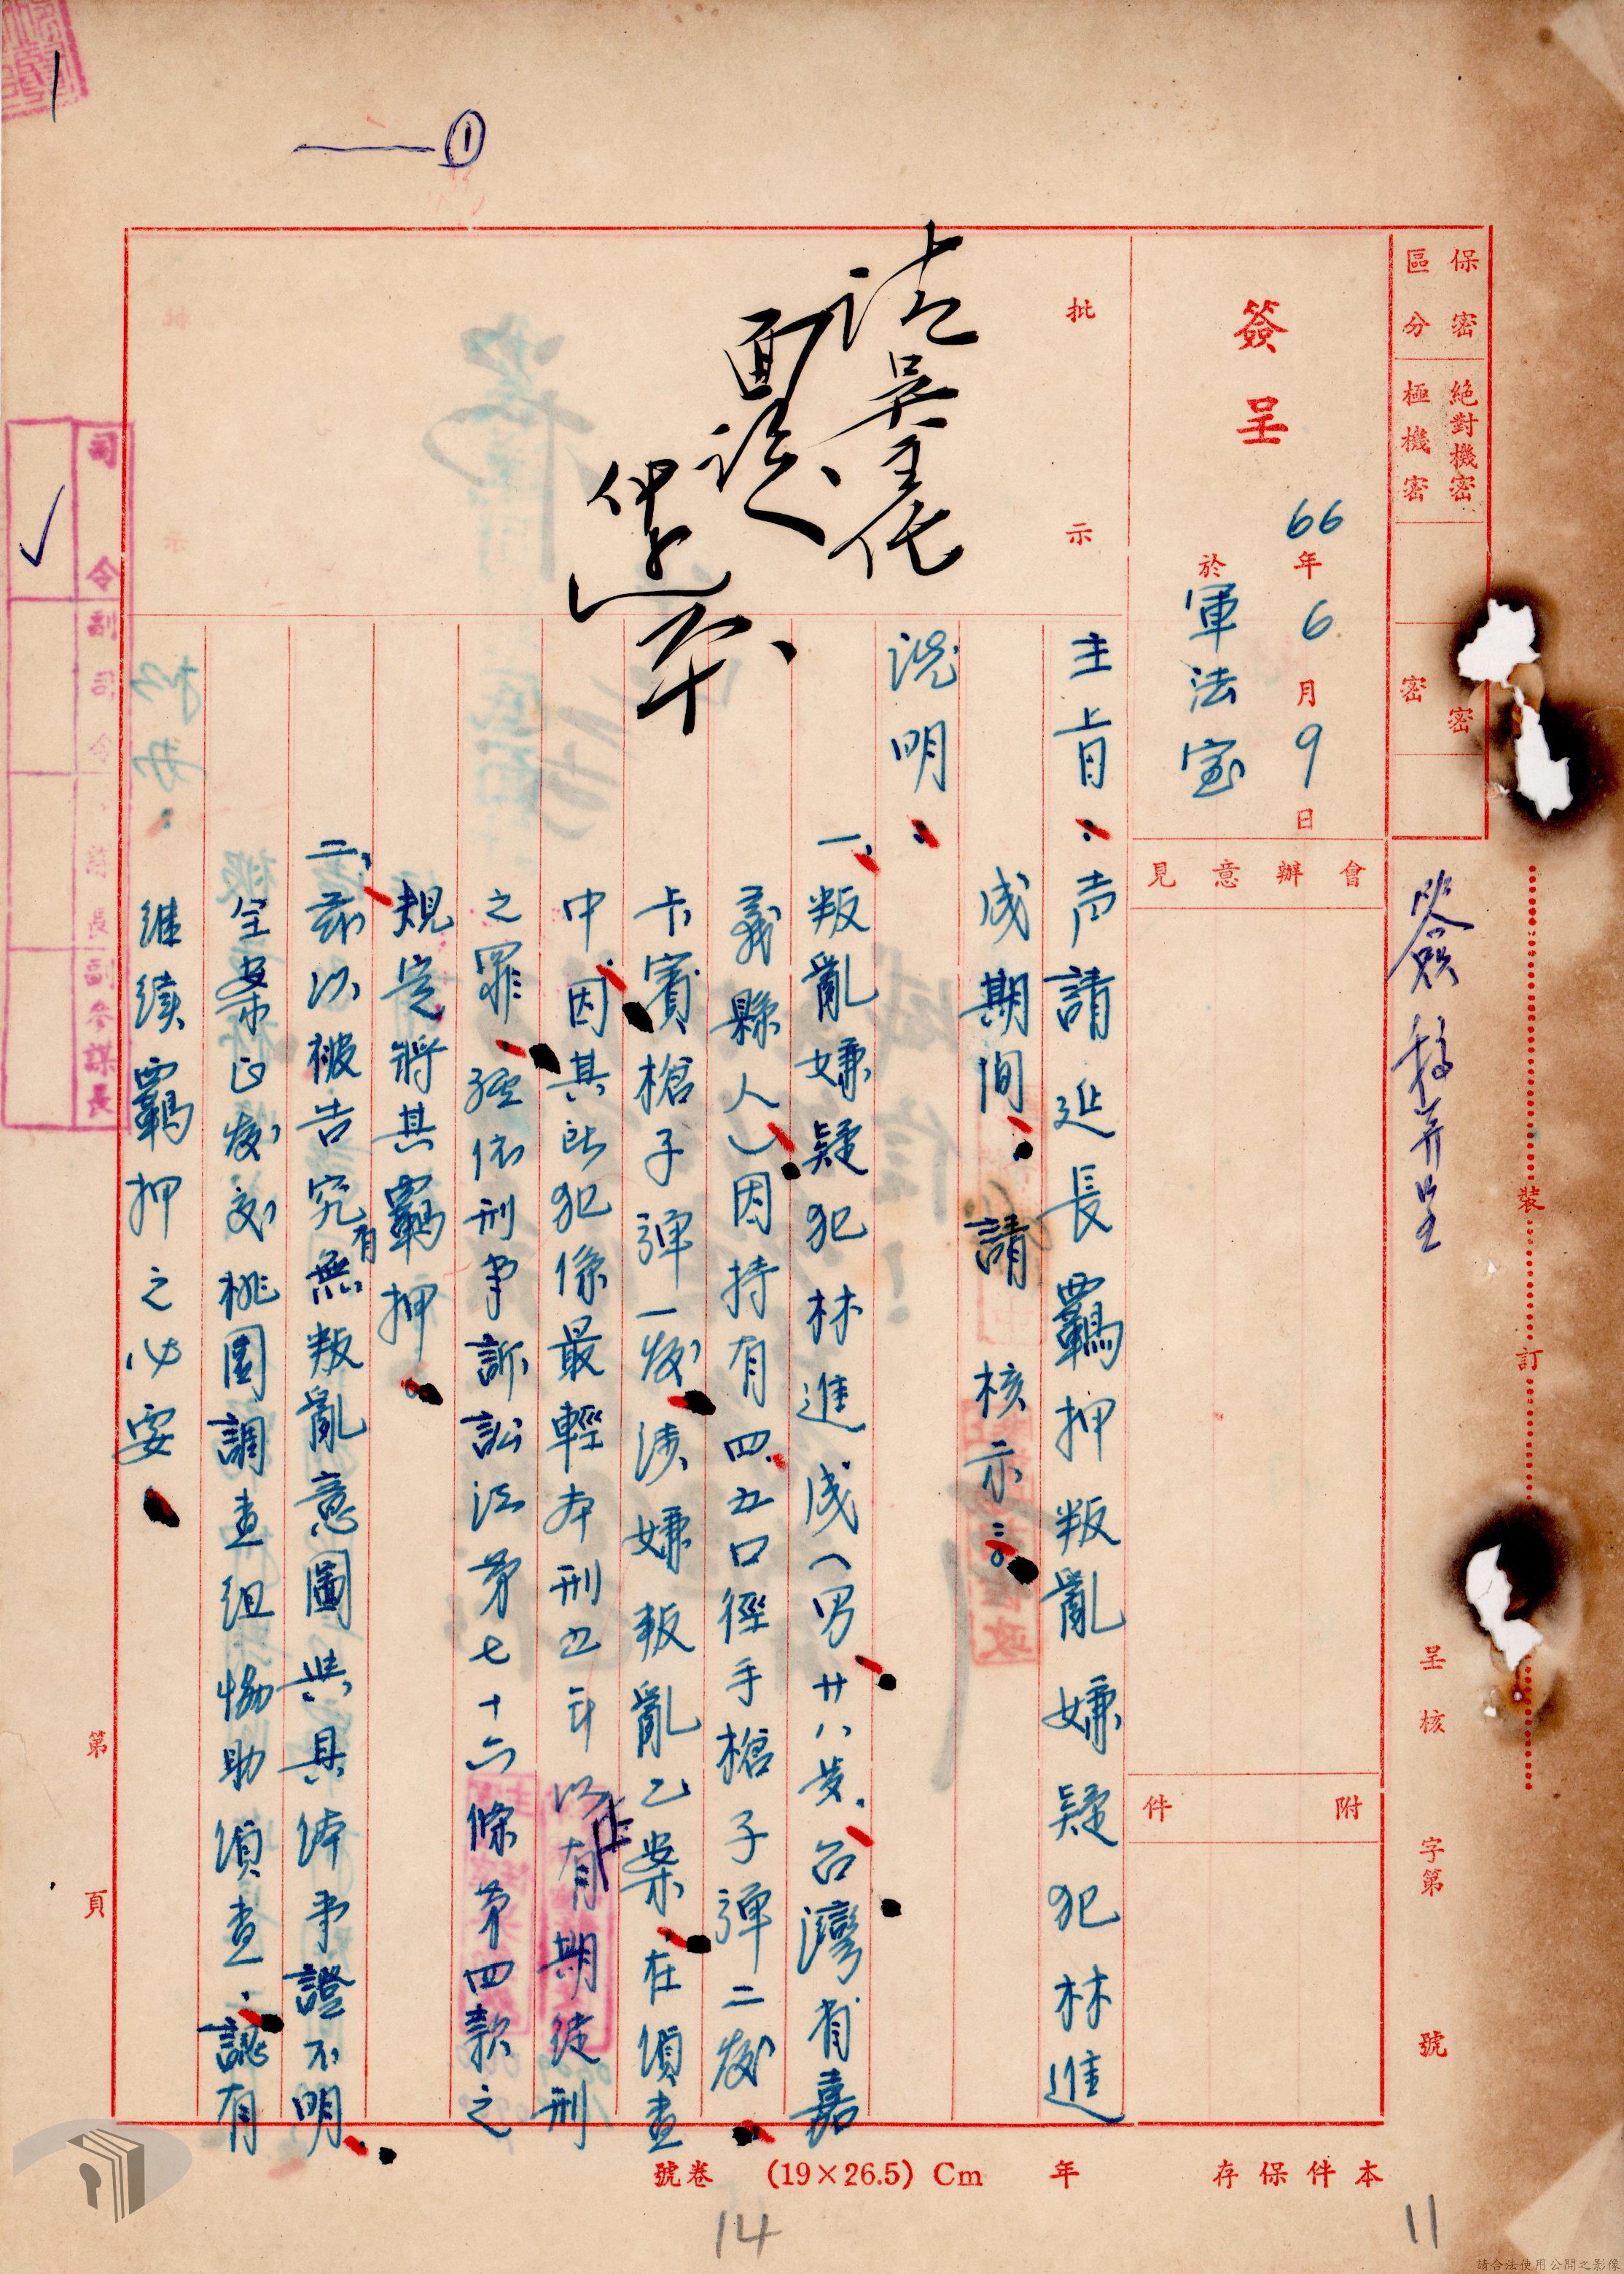 保密區分
絕對機密
極機密
密
密
簽呈
66年6月9日
於軍法室
會辦意見
附件
簽稿并呈
裝
訂
呈核
字第
號
批示
請吳主任
面洽
主旨：声請延長羈押叛亂嫌疑犯林進
成期間，請　核示。
說明：
一、叛亂嫌疑犯林進成（男廿八歲、台灣省嘉
義縣人）因持有四五口徑手槍子彈二發、
卡賓槍子彈一發，涉嫌叛亂乙案，在偵查
中，因其所犯係最輕本刑五年以上有期徒刑
之罪，經依刑事訴訟法第七十六條第四款之
規定將其羈押。
二、茲以被告究有無叛亂意圖與具体事證不明，
全案正發交桃園調查組協助偵查，認有
繼續羈押之必要。
擬办：
司令
副司令
參謀長
副參謀長
第
頁
本件保存
年
(19×26.5) Cm
卷號
14
11
1
①
請合法使用公開之影像